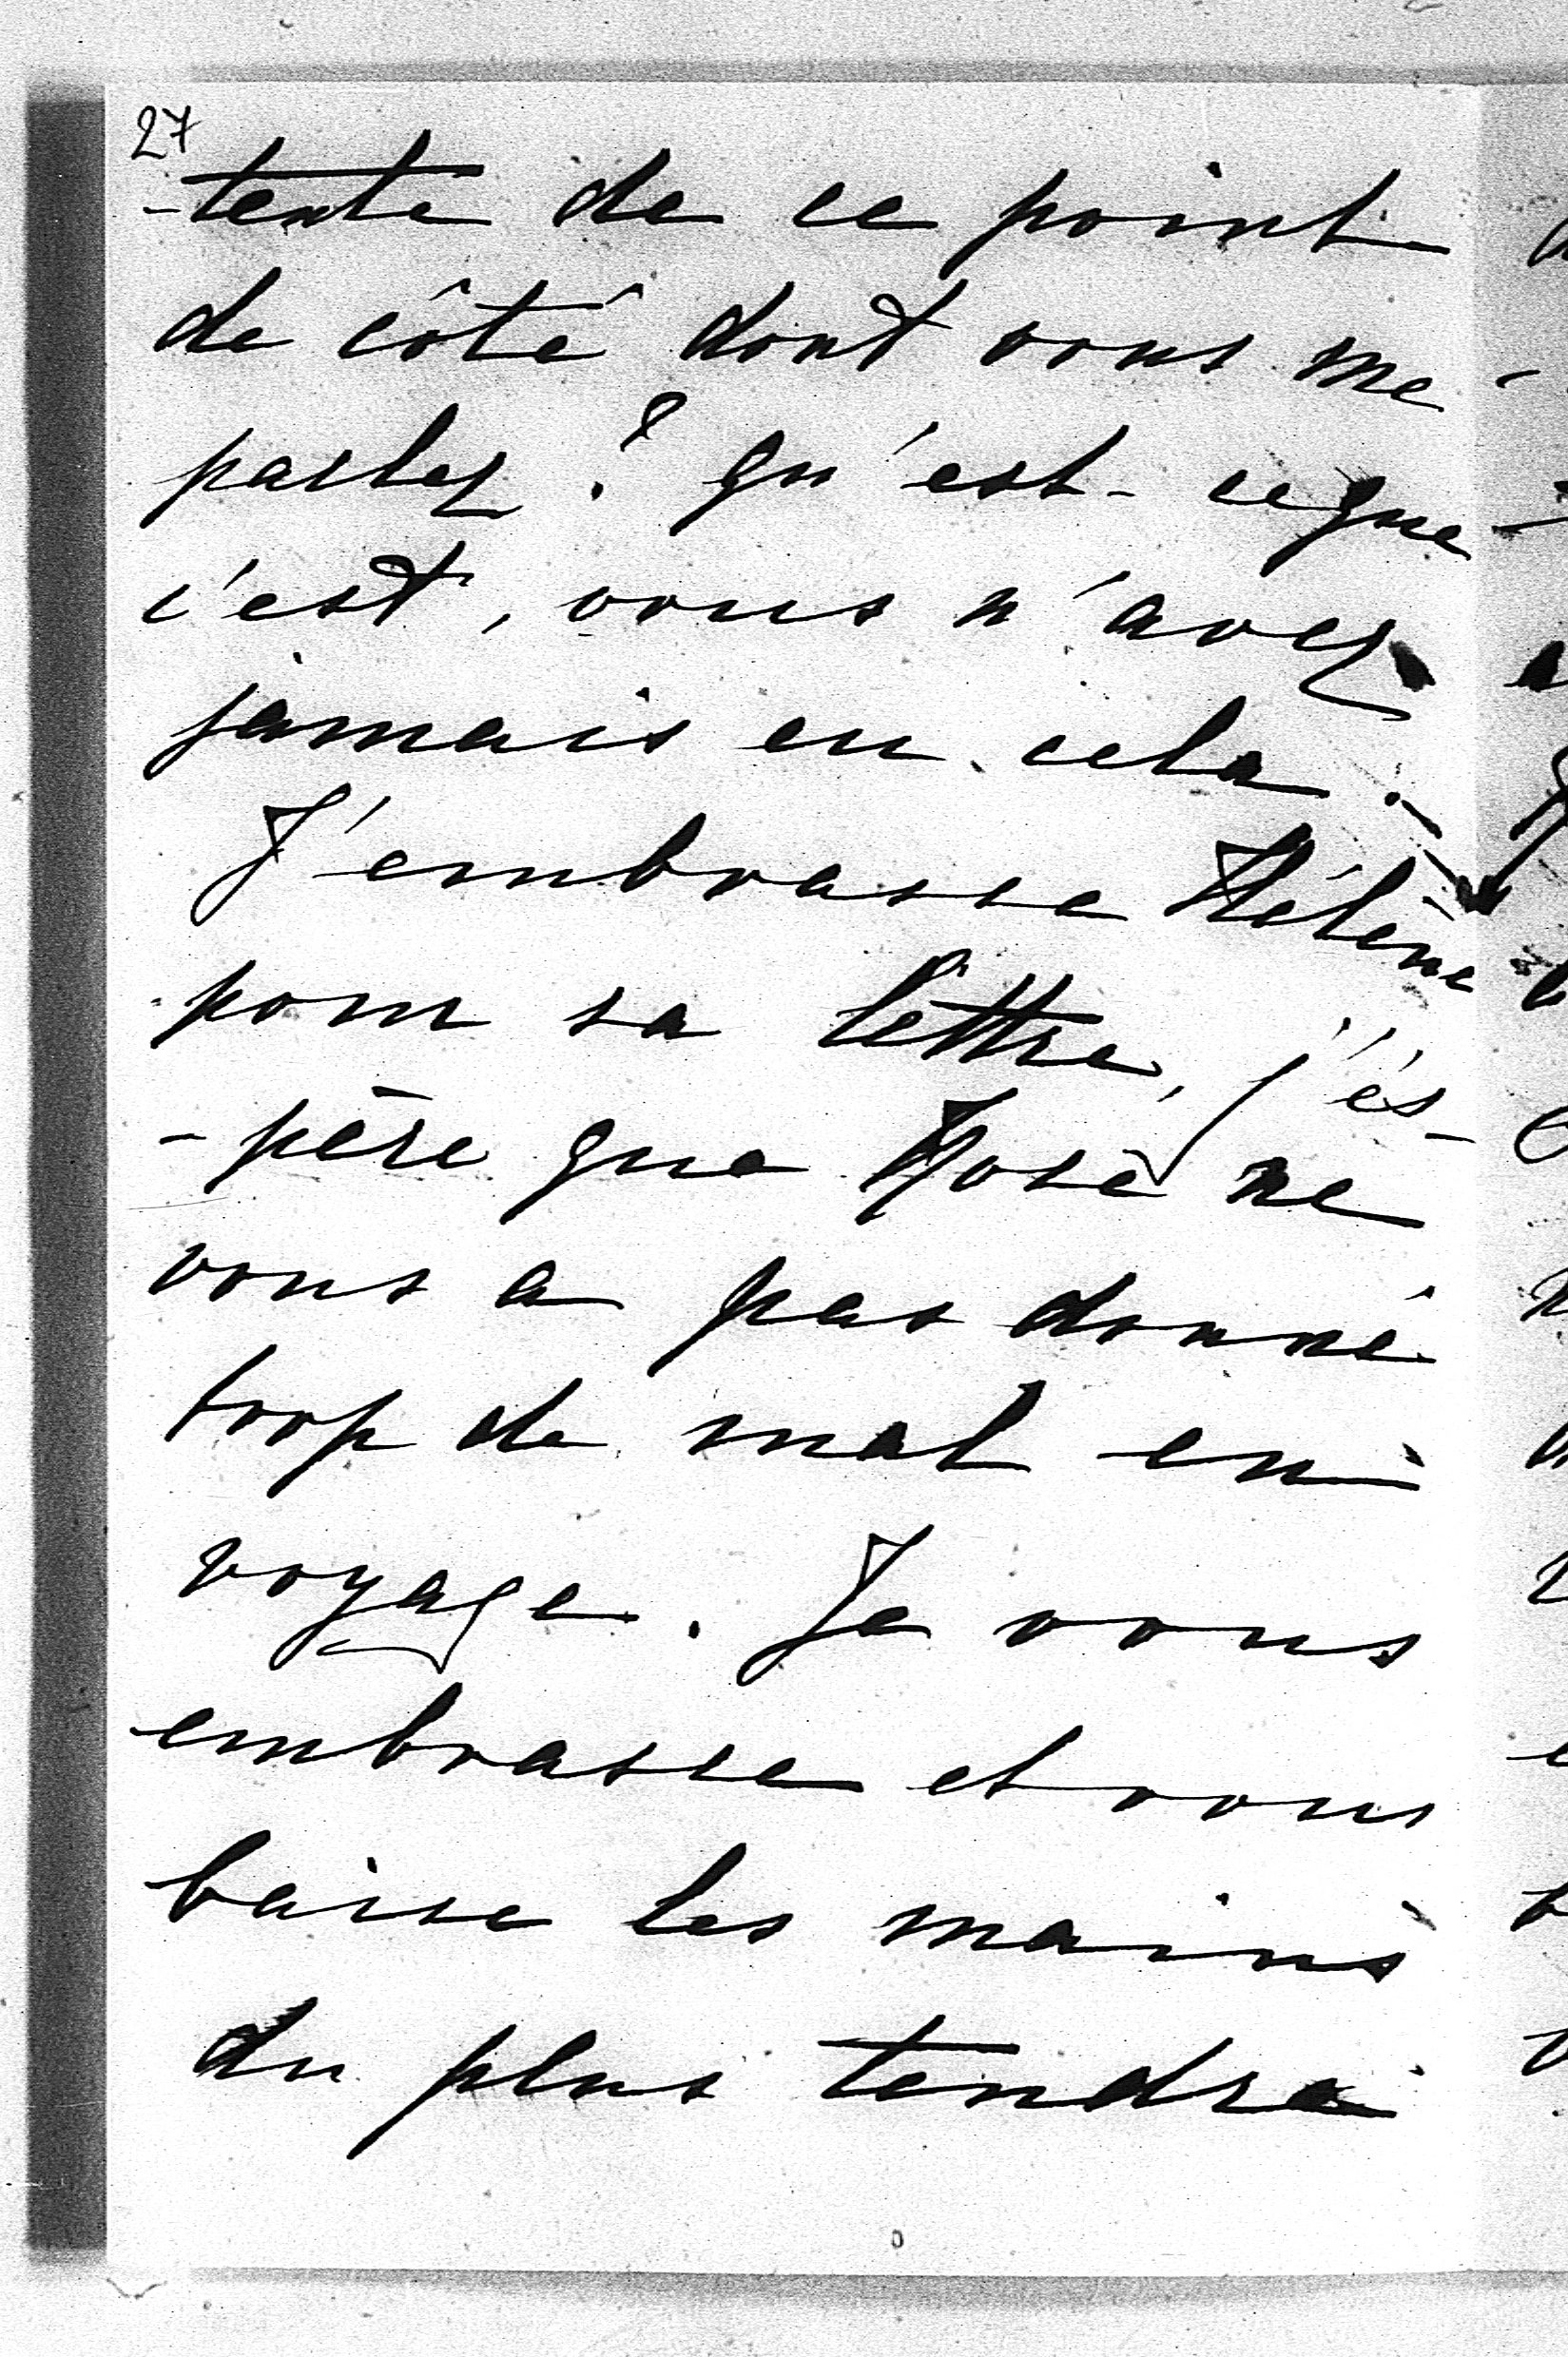 27
-tente de ce point
de côté dont vous me
parlez ? qu'est-ce que
c'est, vous n'avez
jamais eu cela.
J'embrasse Hélène
pour sa lettre, j'es-
-père que José ne
vous a pas donné
trop de mal en
voyage. Je vous
embrasse et vous
baise les mains
du plus tendre